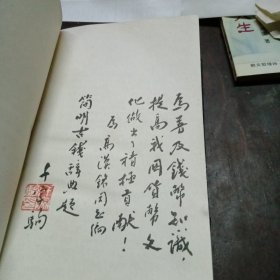 为普及钱币知识
提高我国货币文
化做出了积极贡献！
为高汉铭同志编
简明古钱辞典题
千家驹
生